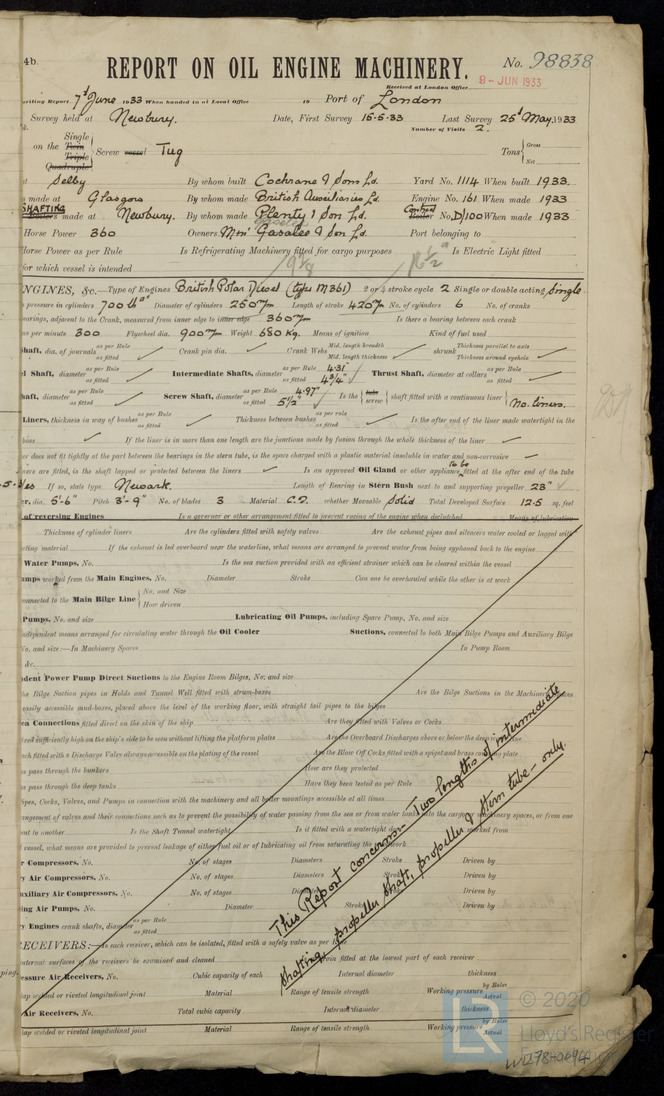 4b.
REPORT ON OIL ENGINE MACHINERY.
No. 98838
Received at London Office
9 - JUN 1933
writing Report 7th June 1933 When handed in at Local Office 19 Port of London
Survey held at Newbury. Date, First Survey 15-5-33 Last Survey 25th May, 1933
Number of Visits 2.
on the Single Twin Triple Quadruple Screw vessel Tug Tons Gross Net
at Selby By whom built Cochrane & Sons Ld. Yard No. 1114 When built 1933.
made at Glasgow By whom made British Auxiliaries Ld. Engine No. 161 When made 1933
SHAFTING made at Newbury. By whom made Plenty & Son Ld. Contract No. D/100 When made 1933
Horse Power 360 Owners Port belonging to
Horse Power as per Rule Is Refrigerating Machinery fitted for cargo purposes Is Electric Light fitted
for which vessel is intended 9⅞ 16½"
ENGINES, &c. Type of Engines British Polar Diesel (type M361) 2 or 4 stroke cycle 2 Single or double acting Single
pressure in cylinders 700 lbs" Diameter of cylinders 250 m/m Length of stroke 420 m/m No. of cylinders 6 No. of cranks
bearings, adjacent to the Crank, measured from inner edge to inner edge 360 m/m Is there a bearing between each crank
as per minute 300 Flywheel dia. 900 m/m Weight 680 Kg. Means of ignition Kind of fuel used
Shaft, dia. of journals as per Rule as fitted Crank pin dia. Crank Webs Mid. length breadth Mid. length thickness shrunk Thickness parallel to axis Thickness around eyehole
Shaft, diameter as per Rule as fitted Intermediate Shafts, diameter as per Rule 4.31" as fitted 4¾" Thrust Shaft, diameter at collars as per Rule as fitted
Shaft, diameter as per Rule as fitted Screw Shaft, diameter as per Rule 4.97" as fitted 5½" Is the tube screw shaft fitted with a continuous liner No. liners.
Liners, thickness in way of bushes as per Rule as fitted Thickness between bushes as per rule as fitted Is the after end of the liner made watertight in the
If the liner is in more than one length are the junctions made by fusion through the whole thickness of the liner
er does not fit tightly at the part between the bearings in the stern tube, is the space charged with a plastic material insoluble in water and non-corrosive
ers are fitted, is the shaft lapped or protected between the liners Is an approved Oil Gland or other appliance to be fitted at the after end of the tube
If so, state type Newark. Length of Bearing in Stern Bush next to and supporting propeller 23"
er, dia. 5'-6" Pitch 3'-9" No. of blades 3 Material C.I. whether Moveable Solid Total Developed Surface 12.5 sq. feet
of reversing Engines Is a governor or other arrangement fitted to prevent racing of the engine when declutched Means of lubrication
Thickness of cylinder liners Are the cylinders fitted with safety valves Are the exhaust pipes and silencers water cooled or lagged with
cting material If the exhaust is led overboard near the waterline, what means are arranged to prevent water from being syphoned back to the engine
Water Pumps, No. Is the sea suction provided with an efficient strainer which can be cleared within the vessel
umps worked from the Main Engines, No. Diameter Stroke Can one be overhauled while the other is at work
connected to the Main Bilge Line No. and Size How driven
Pumps, No. and size Lubricating Oil Pumps, including Spare Pump, No. and size
independent means arranged for circulating water through the Oil Cooler Suctions, connected to both Main Bilge Pumps and Auxiliary Bilge
No. and size:—In Machinery Spaces In Pump Room
&c.
ndent Power Pump Direct Suctions to the Engine Room Bilges, No. and size
the Bilge Suction pipes in Holds and Tunnel Well fitted with strum-boxes Are the Bilge Suctions in the Machinery Spaces
easily accessible mud-boxes, placed above the level of the working floor, with straight tail pipes to the bilges
Sea Connections fitted direct on the skin of the ship Are they fitted with Valves or Cocks
xed sufficiently high on the ship's side to be seen without lifting the platform plates Are the Overboard Discharges above or below the deep water line
each fitted with a Discharge Valve always accessible on the plating of the vessel Are the Blow Off Cocks fitted with a spigot and brass covering plate
s pass through the bunkers How are they protected
s pass through the deep tanks Have they been tested as per Rule
ipes, Cocks, Valves, and Pumps in connection with the machinery and all boiler mountings accessible at all times
rangement of valves and their connections such as to prevent the possibility of water passing from the sea or from water tanks into the cargo or machinery spaces, or from one
ent to another Is the Shaft Tunnel watertight Is it fitted with a watertight door worked from
vessel, what means are provided to prevent leakage of either fuel oil or of lubricating oil from saturating the woodwork
r Compressors, No. No. of stages Diameters Stroke Driven by
y Air Compressors, No. No. of stages Diameters Stroke Driven by
uxiliary Air Compressors, No. No. of stages Diameters Stroke Driven by
ing Air Pumps, No. Diameter Stroke Driven by
y Engines crank shafts, diameter as per Rule as fitted
RECEIVERS:—Is each receiver, which can be isolated, fitted with a safety valve as per Rule
internal surfaces of the receivers be examined and cleaned drain fitted at the lowest part of each receiver
essure Air Receivers, No. Cubic capacity of each Internal diameter thickness
ap welded or riveted longitudinal joint Material Range of tensile strength Working pressure by Rules Actual
Air Receivers, No. Total cubic capacity Internal diameter thickness
ap welded or riveted longitudinal joint Material Range of tensile strength Working pressure by Rules Actual
This Report concerns Two lengths of intermediate
shafting, propeller shaft, propeller & stern tube – only.
LR
© 2020
Lloyd's Register
W1178-0094